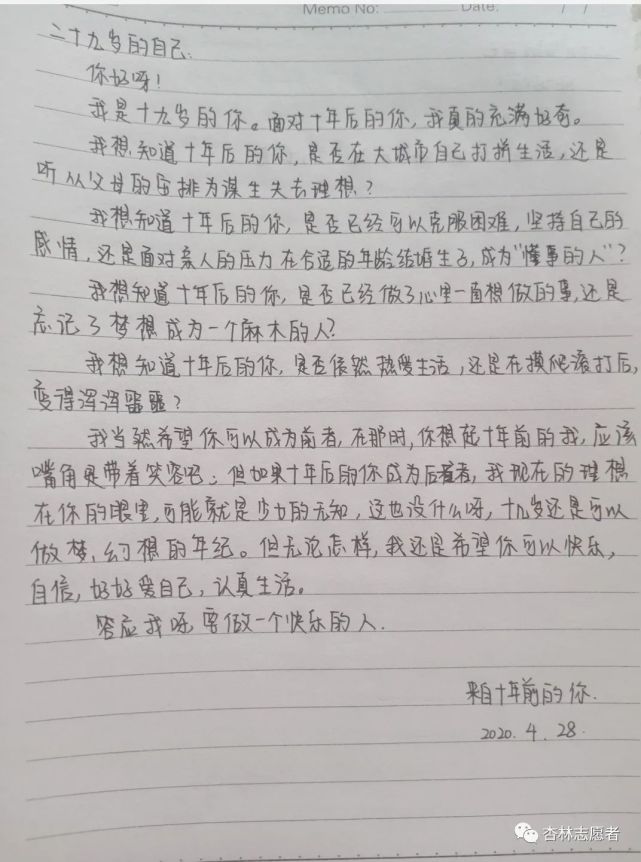 Memo No:
Date: / /
二十九岁的自己:
你好呀!
我是十九岁的你。面对十年后的你,我真的充满好奇。
我想知道十年后的你,是否在大城市自己打拼生活,还是
听从父母的安排为谋生失去理想?
我想知道十年后的你,是否已经可以克服困难,坚持自己的
感情,还是面对亲人的压力在合适的年龄结婚生子,成为“懂事的人”?
我想知道十年后的你,是否已经做了心里一直想做的事,还是
忘记了梦想成为一个麻木的人?
我想知道十年后的你,是否依然热爱生活,还是在摸爬滚打后,
变得浑浑噩噩?
我当然希望你可以成为前者,在那时,你想起十年前的我,应该
嘴角是带着笑容吧;但如果十年后的你成为后者,我现在的理想
在你的眼里,可能就是少女的无知,这也没什么呀,十九岁还是可以
做梦、幻想的年纪。但无论怎样,我还是希望你可以快乐,
自信,好好爱自己,认真生活。
答应我呀,要做一个快乐的人.
来自十年前的你.
2020. 4. 28.
杏林志愿者